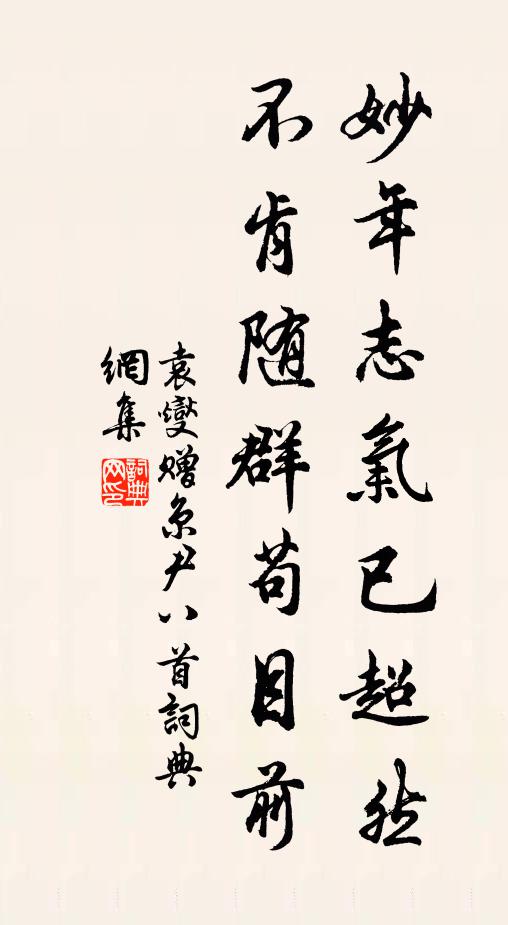 妙年志氣已超然
不肯随群苟目前
袁燮赠京尹八首詞典
網集
詞典网印